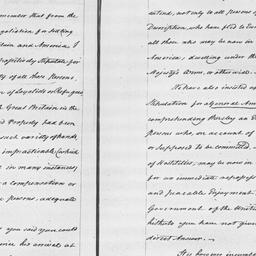 emember that from the
egotiation for settling
ritain and America I
xplicitly stipulate for
ty of all those Persons,
n of Loyalists or Refugees
th Great Britain in the
d Property had been
such variety of hands,
impracticable (which
e in many instances)
a compensation or
e persons, adequate
you said you could
ence his arrival at
extend, not only to all persons of
Description, who have fled to Eur
all those who may be now in
America, dwelling under the
Majesty's Arms, or otherwise.
We have also insisted up
Stipulation for a general Amn
comprehending thereby an En
persons who, on account of
or supposed to be committed
of Hostilities, may be now in
for an immediate repossession
and peaceable Enjoyment
Government of the United
hitherto you have not given
direct Answer.
It is however incumbe